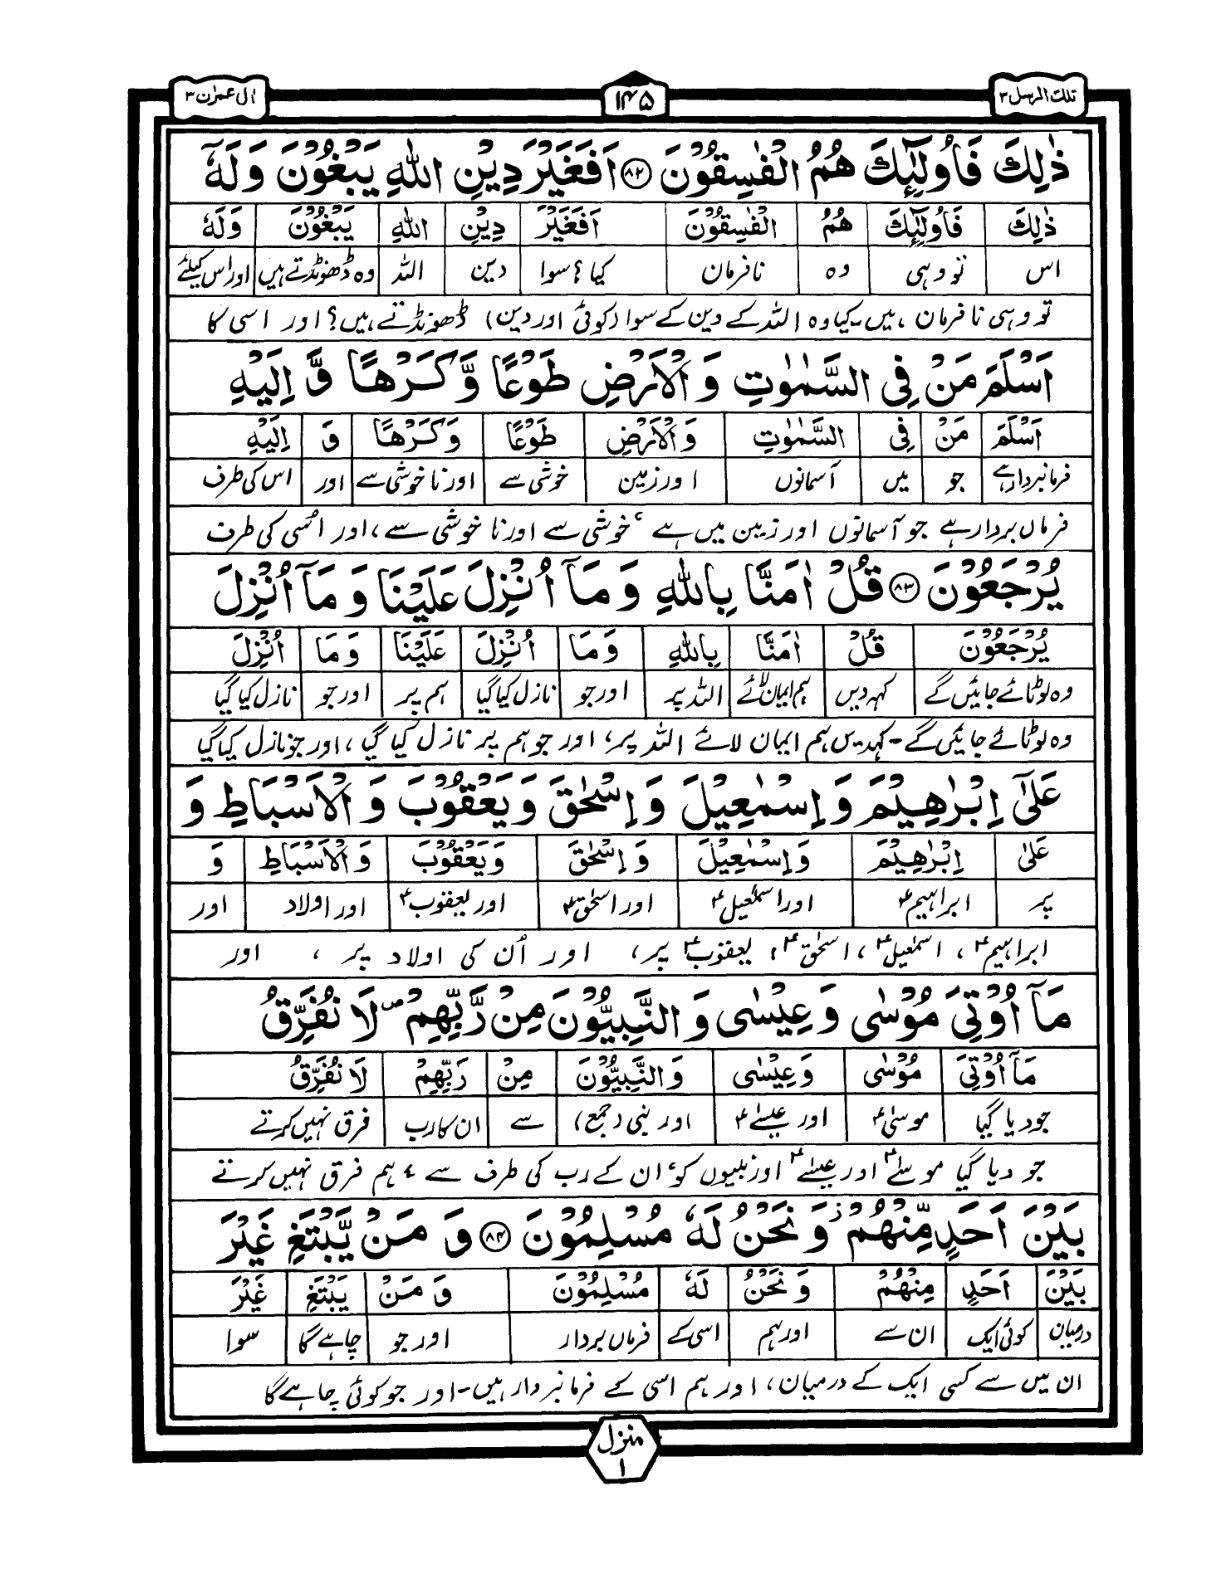 تلك الرسل ۳
۱۴۵
اٰل عمرٰن ۳
ذٰلِكَ فَاُولٰٓئِكَ هُمُ الْفٰسِقُوْنَ ۸۲ اَفَغَيْرَ دِيْنِ اللّٰهِ يَبْغُوْنَ وَلَهٗٓ
ذٰلِكَ فَاُولٰٓئِكَ هُمُ الْفٰسِقُوْنَ اَفَغَيْرَ دِيْنِ اللّٰهِ يَبْغُوْنَ وَلَهٗ
اس تو وہی وہ نافرمان کیا؟ سوا دین اللہ وہ ڈھونڈتے ہیں اور اس کیلئے
تو وہی نافرمان ہیں۔ کیا وہ اللہ کے دین کے سوا (کوئی اور دین) ڈھونڈتے ہیں؟ اور اسی کا
اَسْلَمَ مَنْ فِى السَّمٰوٰتِ وَالْاَرْضِ طَوْعًا وَّكَرْهًا وَّ اِلَيْهِ
اَسْلَمَ مَنْ فِى السَّمٰوٰتِ وَالْاَرْضِ طَوْعًا وَّكَرْهًا وَّ اِلَيْهِ
فرمانبردار ہے جو میں آسمانوں اور زمین خوشی سے اور ناخوشی سے اور اس کی طرف
فرماں بردار ہے جو آسمانوں اور زمین میں ہے خوشی سے اور ناخوشی سے، اور اُسی کی طرف
يُرْجَعُوْنَ ۸۳ قُلْ اٰمَنَّا بِاللّٰهِ وَمَآ اُنْزِلَ عَلَيْنَا وَمَآ اُنْزِلَ
يُرْجَعُوْنَ قُلْ اٰمَنَّا بِاللّٰهِ وَمَآ اُنْزِلَ عَلَيْنَا وَمَآ اُنْزِلَ
وہ لوٹائے جائیں گے کہہ دیں ہم ایمان لائے اللہ پر اور جو نازل کیا گیا ہم پر اور جو نازل کیا گیا
وہ لوٹائے جائیں گے۔ کہدیں ہم ایمان لائے اللہ پر، اور جو ہم پر نازل کیا گیا، اور جو نازل کیا گیا
عَلٰٓى اِبْرٰهِيْمَ وَاِسْمٰعِيْلَ وَاِسْحٰقَ وَيَعْقُوْبَ وَالْاَسْبَاطِ وَ
عَلٰٓى اِبْرٰهِيْمَ وَاِسْمٰعِيْلَ وَاِسْحٰقَ وَيَعْقُوْبَ وَالْاَسْبَاطِ وَ
پر ابراہیمؑ اور اسمٰعیلؑ اور اسحٰقؑ اور یعقوبؑ اور اولاد اور
ابراہیمؑ، اسمٰعیلؑ، اسحٰقؑ، یعقوبؑ پر، اور اُن کی اولاد پر، اور
مَآ اُوْتِىَ مُوْسٰى وَعِيْسٰى وَالنَّبِيُّوْنَ مِنْ رَّبِّهِمْ ص لَا نُفَرِّقُ
مَآ اُوْتِىَ مُوْسٰى وَعِيْسٰى وَالنَّبِيُّوْنَ مِنْ رَبِّهِمْ لَا نُفَرِّقُ
جو دیا گیا موسٰیؑ اور عیسٰےؑ اور نبی (جمع) سے ان کا رب فرق نہیں کرتے
جو دیا گیا موسٰےؑ اور عیسٰےؑ اور نبیوں کو ان کے رب کی طرف سے، ہم فرق نہیں کرتے
بَيْنَ اَحَدٍ مِّنْهُمْ ز وَنَحْنُ لَهٗ مُسْلِمُوْنَ ۸۴ وَمَنْ يَّبْتَغِ غَيْرَ
بَيْنَ اَحَدٍ مِنْهُمْ وَنَحْنُ لَهٗ مُسْلِمُوْنَ وَمَنْ يَبْتَغِ غَيْرَ
درمیان کوئی ایک ان سے اور ہم اسی کے فرماں بردار اور جو چاہے گا سوا
ان میں سے کسی ایک کے درمیان، اور ہم اسی کے فرمانبردار ہیں۔ اور جو کوئی چاہے گا
منزل
۱